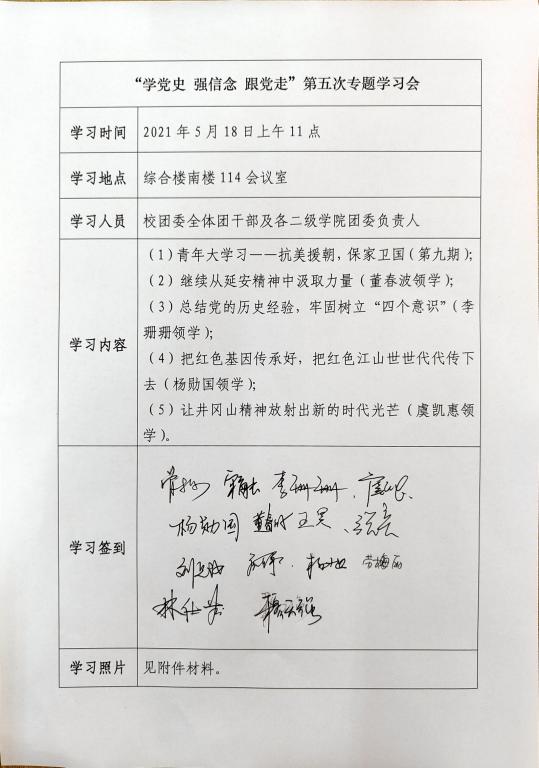 “学党史 强信念 跟党走”第五次专题学习会
学习时间 2021年5月18日上午11点
学习地点 综合楼南楼114会议室
学习人员 校团委全体团干部及各二级学院团委负责人
学习内容
（1）青年大学习——抗美援朝，保家卫国（第九期）；
（2）继续从延安精神中汲取力量（董春波领学）；
（3）总结党的历史经验，牢固树立“四个意识”（李
珊珊领学）；
（4）把红色基因传承好，把红色江山世世代代传下
去（杨勋国领学）；
（5）让井冈山精神放射出新的时代光芒（虞凯惠领
学）。
学习签到
李珊珊
杨勋国 董春波 王昊
劳梅丽
学习照片 见附件材料。